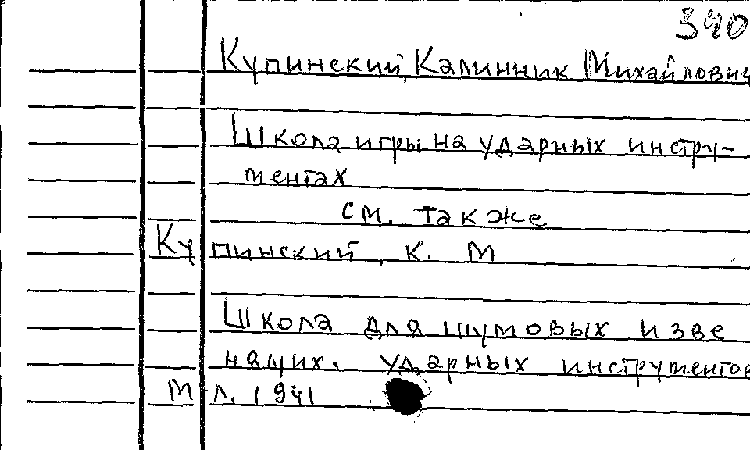 340
Купинский Калинник Михайлович
Школа игры на ударных инстру-
ментах
см. также
Купинский, К. М
Школа для шумовых и зве
нящих. ударных инструментов
М Л. 1941